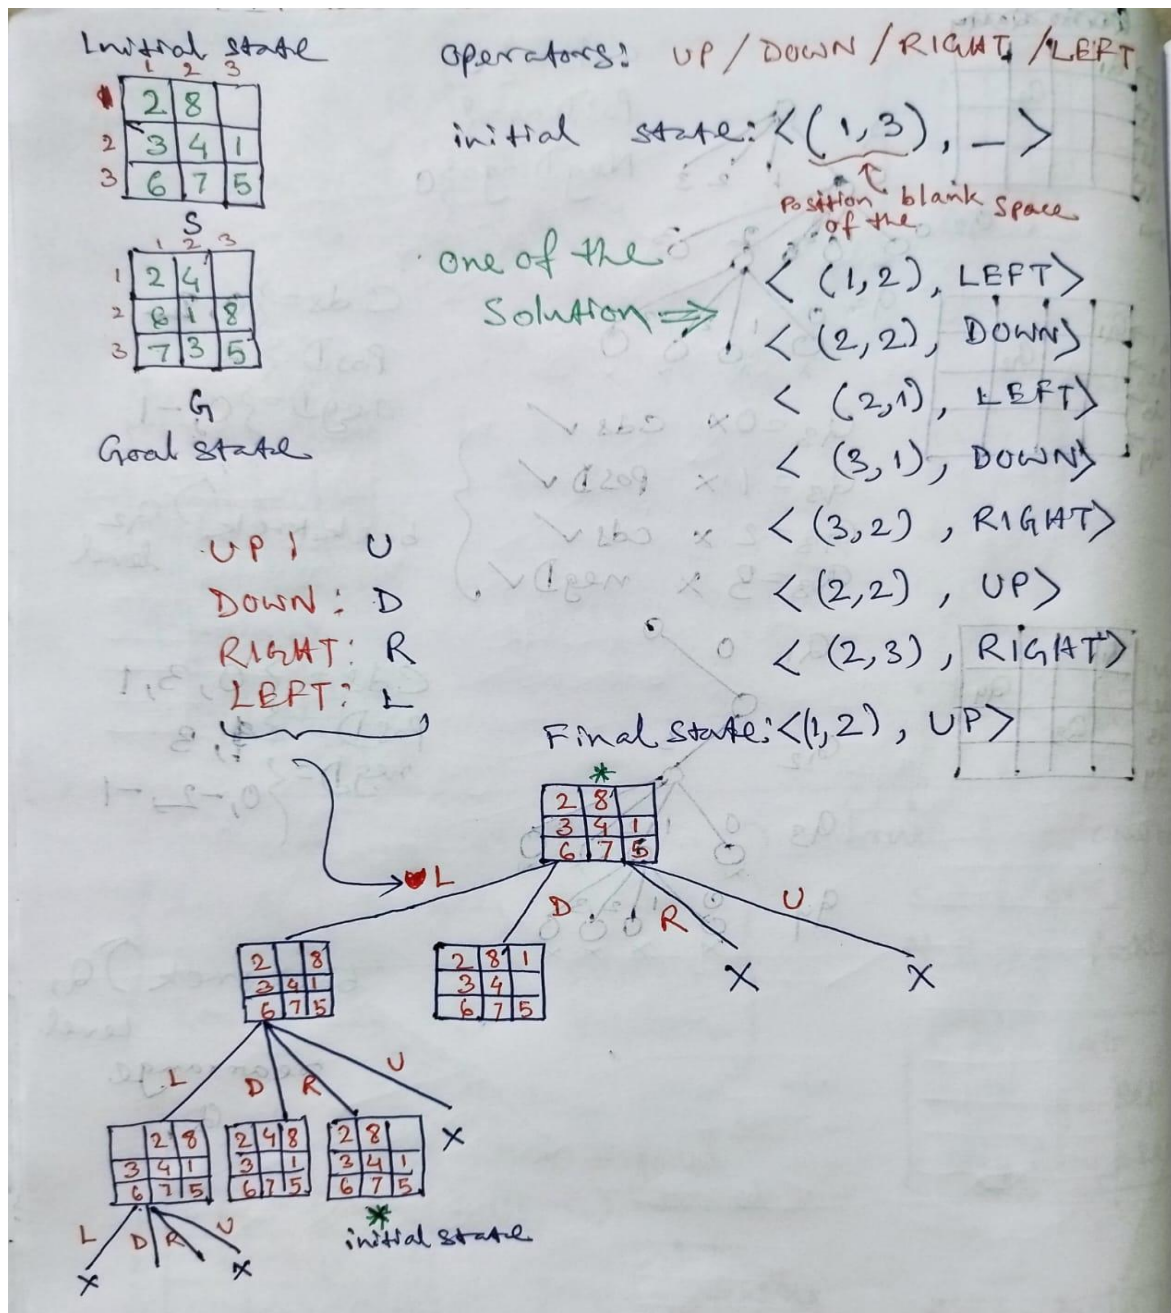 Initial state
1 2 3
1 2 8
2 3 4 1
3 6 7 5
S
1 2 3
1 2 4
2 6 1 8
3 7 3 5
G
Goal state
Operators: UP / DOWN / RIGHT / LEFT
initial state: <(1,3), _>
Position of the blank space
One of the
Solution ⇒
< (1,2), LEFT>
< (2,2), DOWN>
< (2,1), LEFT>
< (3,1), DOWN>
< (3,2), RIGHT>
< (2,2), UP>
< (2,3), RIGHT>
Final state: <(1,2), UP>
UP: U
DOWN: D
RIGHT: R
LEFT: L
*
2 8
3 4 1
6 7 5
L D R U
2 8
3 4 1
6 7 5
2 8 1
3 4
6 7 5
X X
L D R U
2 8
3 4 1
6 7 5
2 4 8
3 1
6 7 5
2 8
3 4 1
6 7 5
X
*
initial state
L D R U
X X